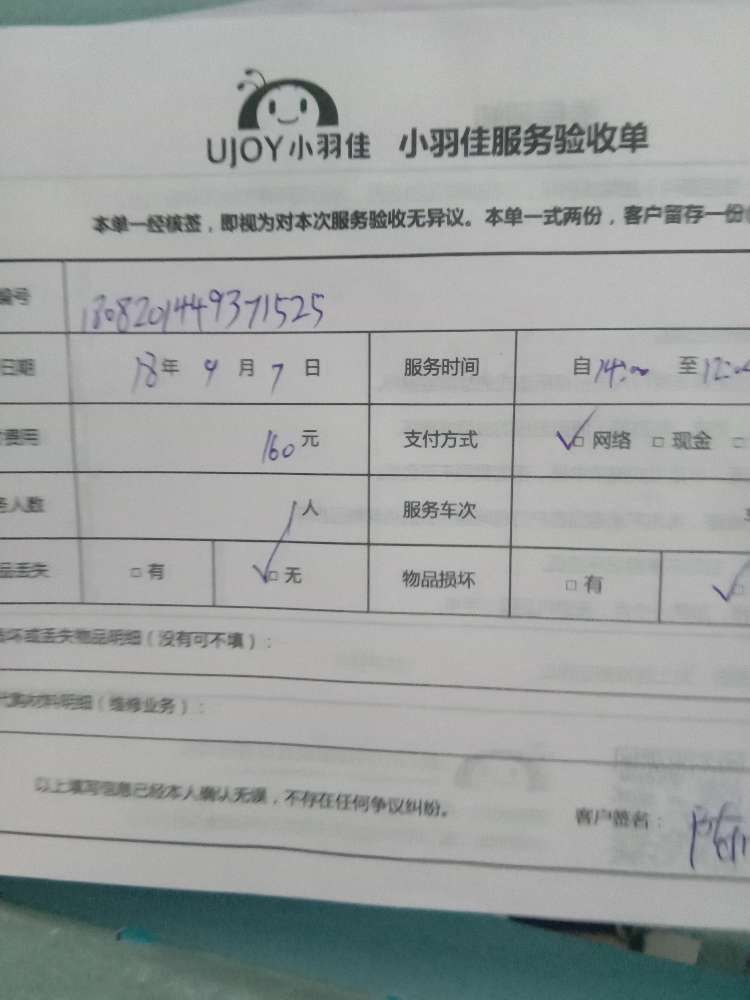 UJOY小羽佳 小羽佳服务验收单
本单一经核签，即视为对本次服务验收无异议。本单一式两份，客户留存一份
编号 180820144937 1525
日期 18年 9月 7日 服务时间 自14:00 至
费用 160元 支付方式 ☑网络 □现金 □
人数 1人 服务车次
品丢失 □有 ☑无 物品损坏 □有 ☑
坏或丢失物品明细（没有可不填）：
材料明细（维修业务）：
以上填写信息已经本人确认无误，不存在任何争议纠纷。
客户签名：